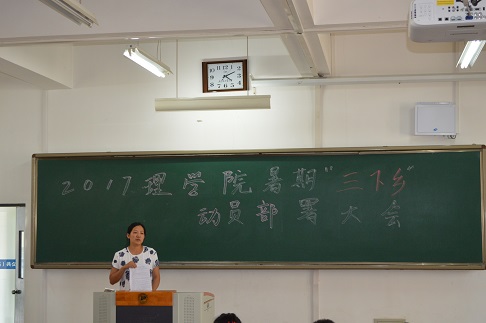 2017理学院暑期"三下乡"
动员部署大会